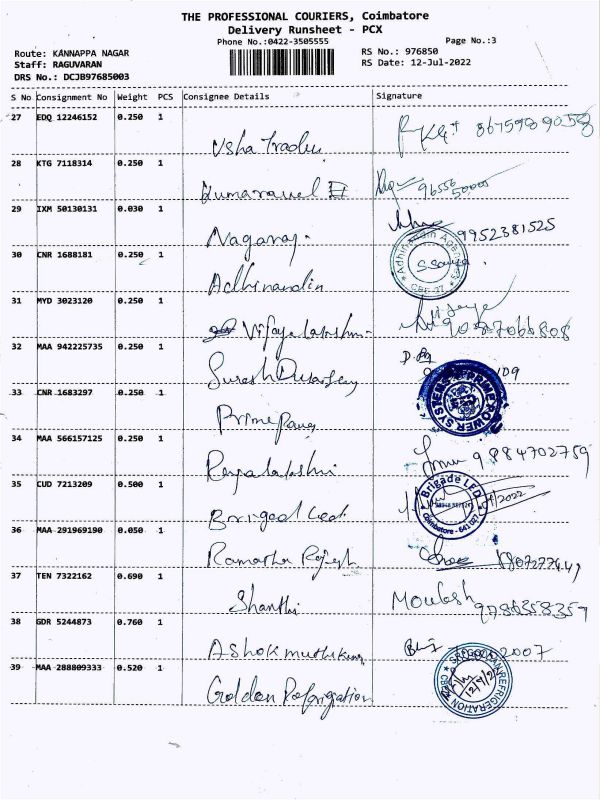 THE PROFESSIONAL COURIERS, Coimbatore
Delivery Runsheet - PCX
Phone No.:0422-3505555 Page No.:3
Route: KANNAPPA NAGAR RS No.: 976850
Staff: RAGUVARAN RS Date: 12-Jul-2022
DRS No.: DCJB97685003
S No Consignment No Weight PCS Consignee Details Signature
27 EDQ 12246152 0.250 1
Usha Traders
28 KTG 7118314 0.250 1
Kumaravel
29 IXM 50130131 0.030 1
Nagaraj 9952381525
30 CNR 1688181 0.250 1
Adhinandin
31 MYD 3023120 0.250 1
Vijayalakshmi
32 MAA 942225735 0.250 1
33 CNR 1683297 0.250 1
Prime Power
34 MAA 566157125 0.250 1
Rajalakshmi 9884702759
35 CUD 7213209 0.500 1 Brigade LED
Coimbatore
36 MAA 291969190 0.050 1
Ramasha Rajesh
37 TEN 7322162 0.690 1
Shanthi 9786358359
38 GDR 5244873 0.760 1
Ashok muthukumar
39 MAA 288809333 0.520 1
Golden Refrigration